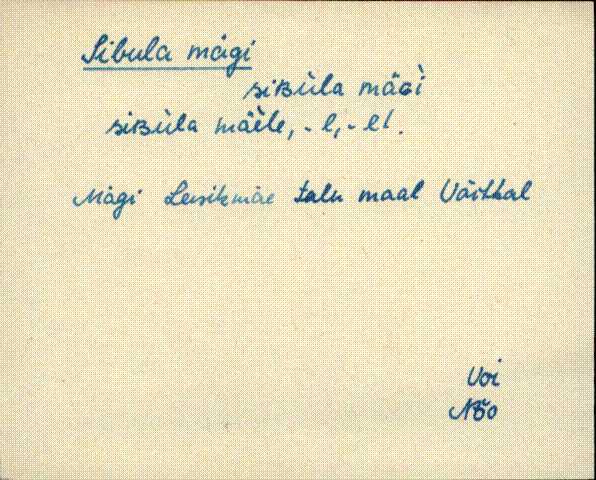 Sibula mägi
siʙùla mäɢì
siʙùla mäèle, - l, - lt.
Mägi Leisikmäe talu maal Väitkal
Voi
Nõo